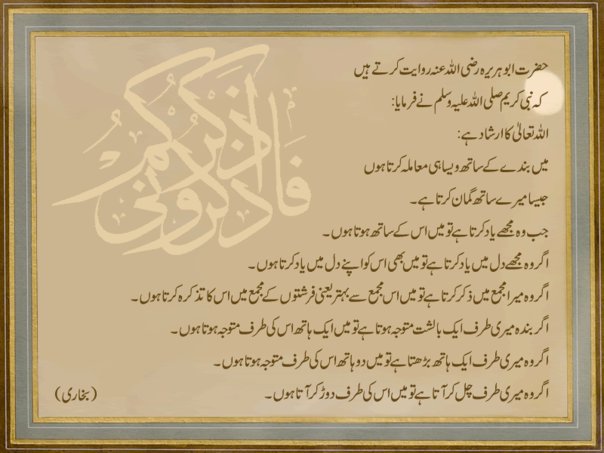 فاذكروني أذكركم
حضرت ابوہریرہ رضی اللہ عنہ روایت کرتے ہیں
کہ نبی کریم صلی اللہ علیہ وسلم نے فرمایا:
اللہ تعالیٰ کا ارشاد ہے:
میں بندے کے ساتھ ویسا ہی معاملہ کرتا ہوں
جیسا میرے ساتھ گمان کرتا ہے۔
جب وہ مجھے یاد کرتا ہے تو میں اس کے ساتھ ہوتا ہوں۔
اگر وہ مجھے دل میں یاد کرتا ہے تو میں بھی اس کو اپنے دل میں یاد کرتا ہوں۔
اگر وہ میرا مجمع میں ذکر کرتا ہے تو میں اس مجمع سے بہتر یعنی فرشتوں کے مجمع میں اس کا تذکرہ کرتا ہوں۔
اگر بندہ میری طرف ایک بالشت متوجہ ہوتا ہے تو میں ایک ہاتھ اس کی طرف متوجہ ہوتا ہوں۔
اگر وہ میری طرف ایک ہاتھ بڑھتا ہے تو میں دو ہاتھ اس کی طرف متوجہ ہوتا ہوں۔
اگر وہ میری طرف چل کر آتا ہے تو میں اس کی طرف دوڑ کر آتا ہوں۔ (بخاری)